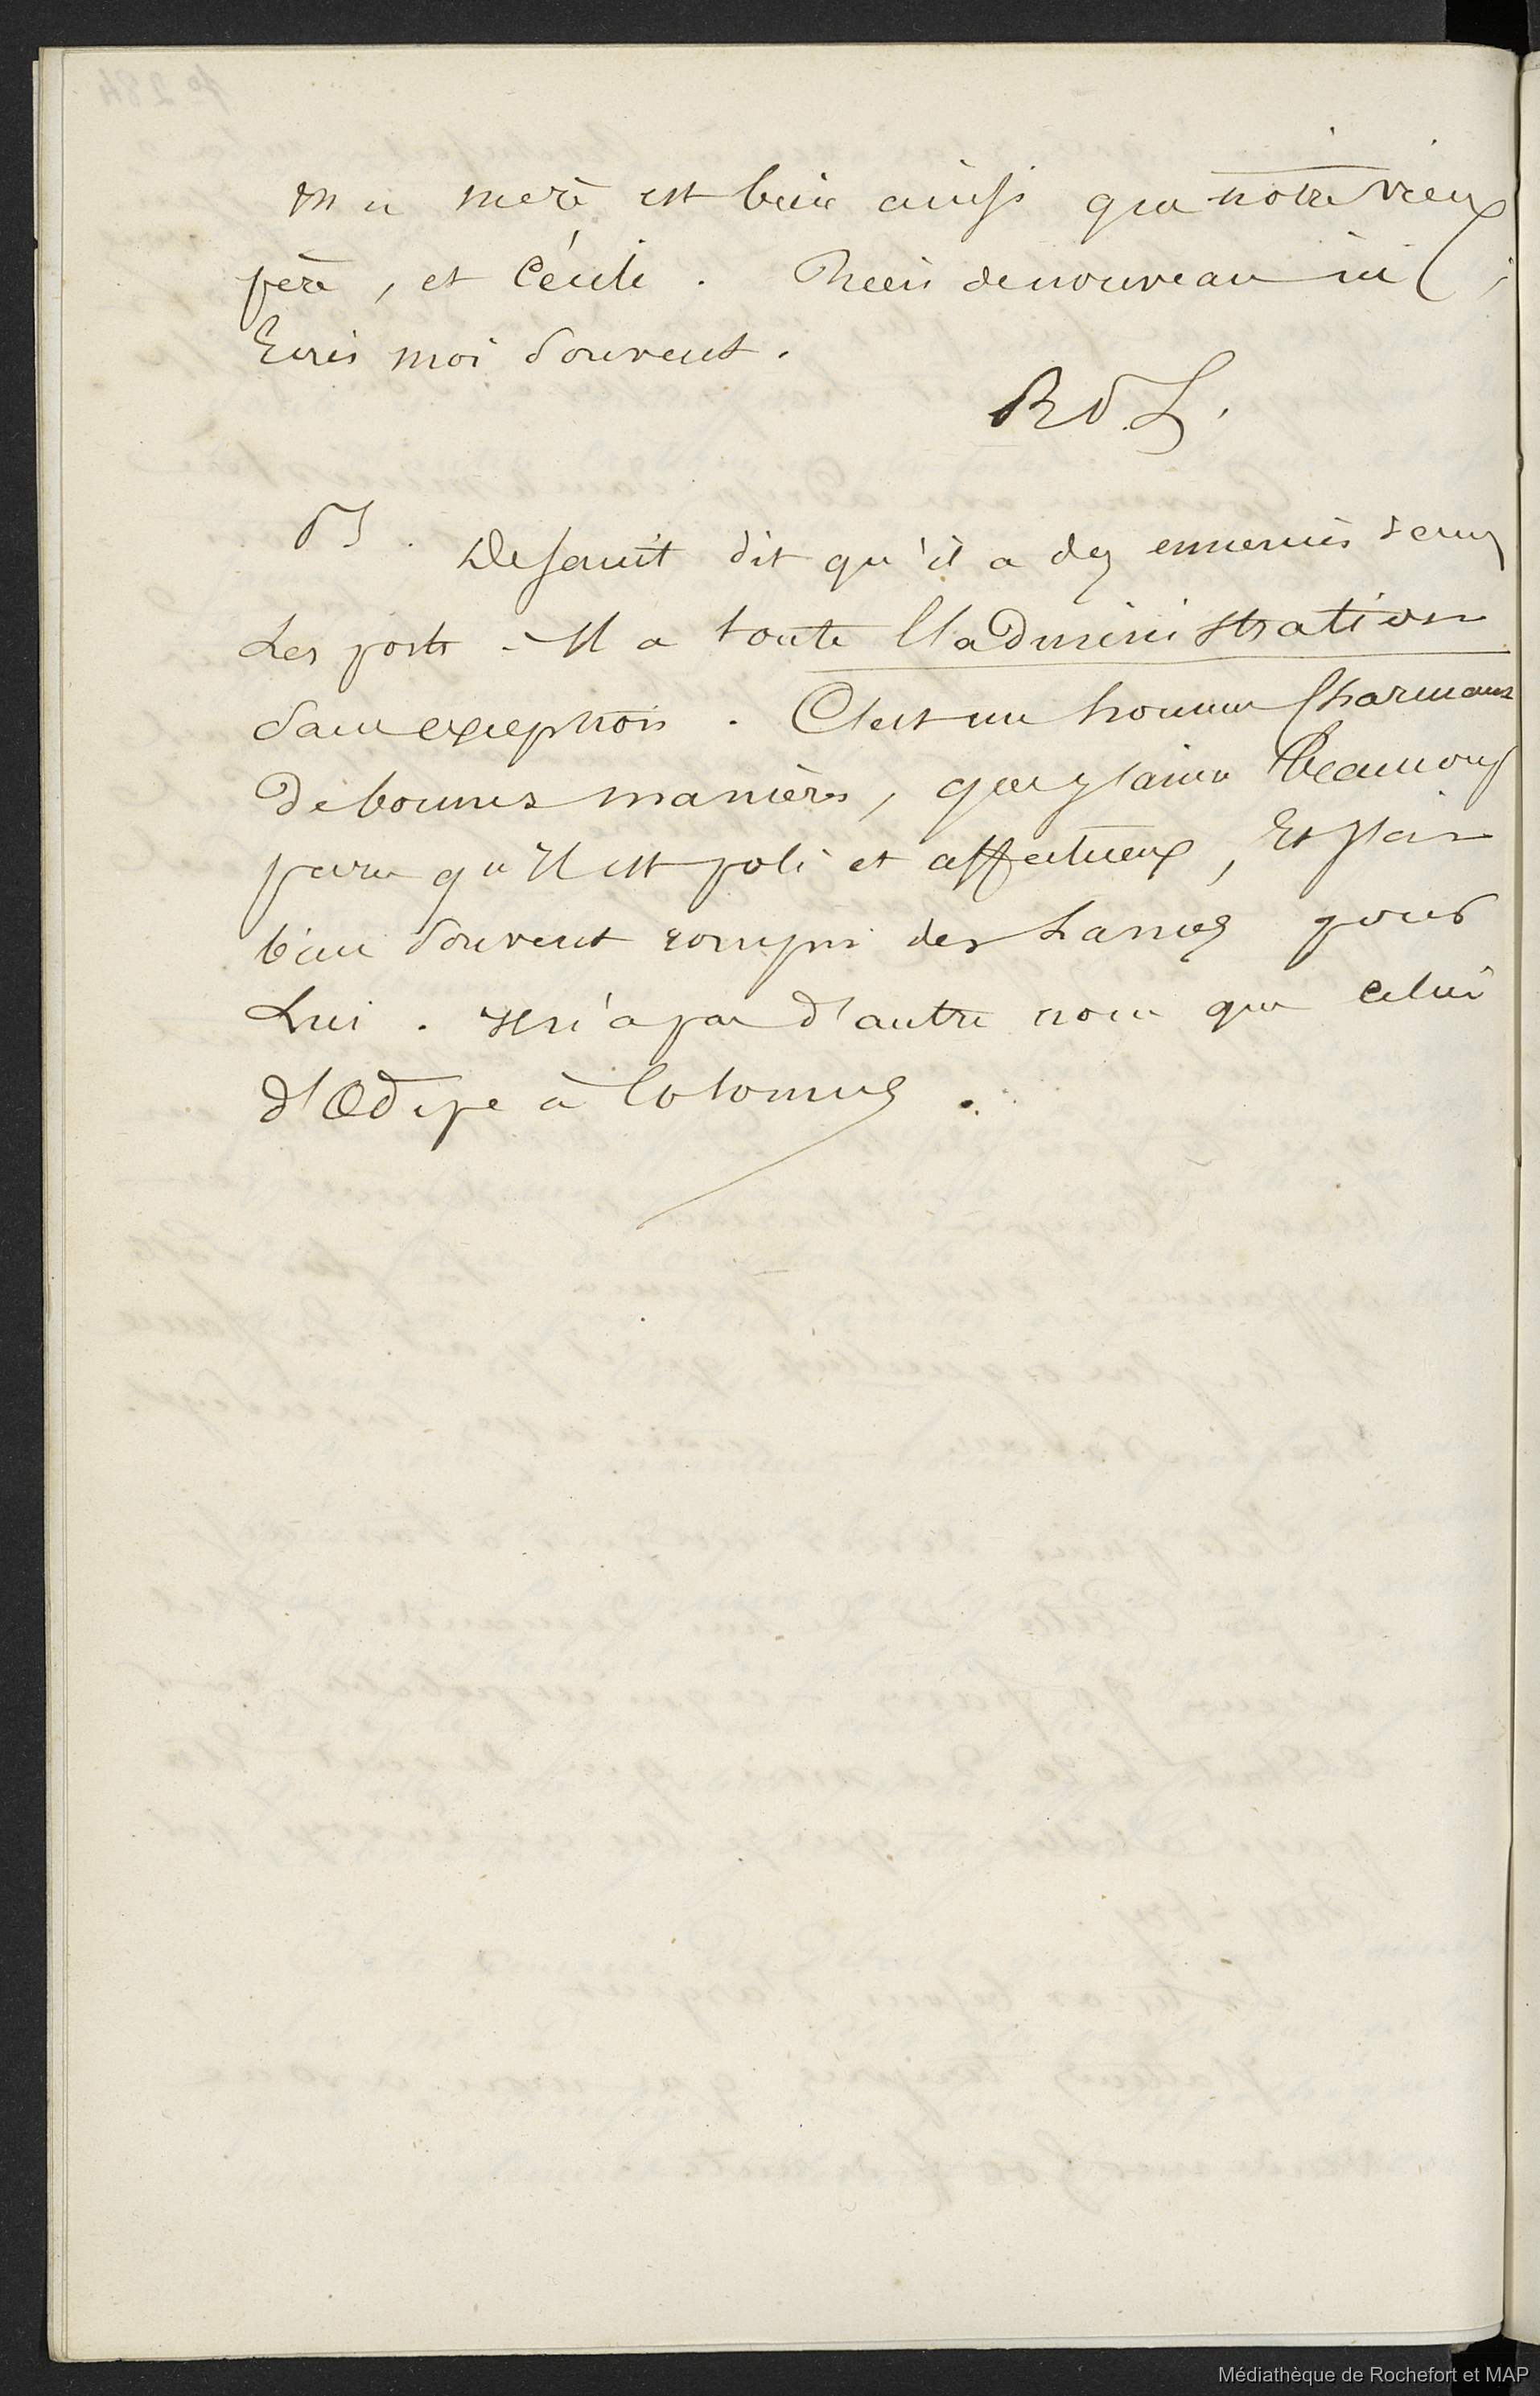 Ma mère est bien ainsi que notre vieux
père, et Cécile. Rien de nouveau ici
Ecris moi souvent.
R d L.
PS. Desanit dit qu'il a des ennemis dans
Les ports - Il a toute l'administration
sans exception. C'est un homme charmant
de bonnes manières, que j'aime beaucoup
parce qu'il est poli et affectueux, Et j'ai
bien souvent rompu des Lances pour
Lui. Il n'a pas d'autre nom que celui
d'Œdipe à Colonnus.
Médiathèque de Rochefort et MAP